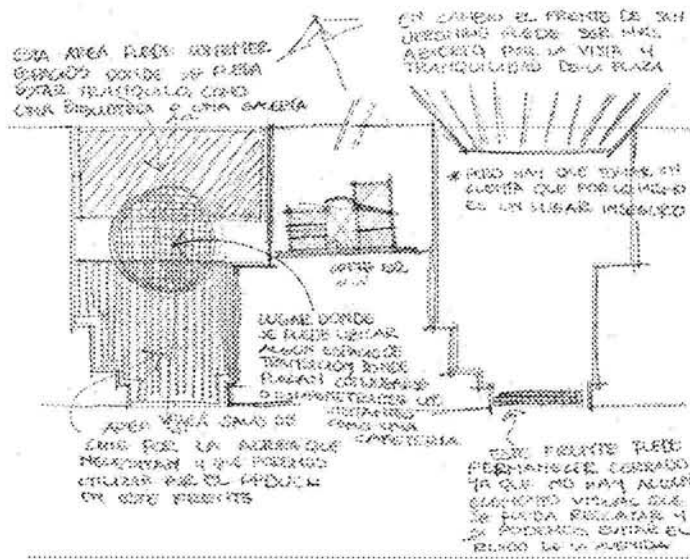 ESTA AREA PUEDE CONTENER
ESPACIOS DONDE SE PUEDA
ESTAR TRANQUILO COMO
UNA BIBLIOTECA O UNA GALERÍA
EN CAMBIO EL FRENTE DE SAN
JERONIMO PUEDE SER MAS
ABIERTO POR LA VISTA Y
TRANQUILIDAD DE LA PLAZA
* PERO HAY QUE TOMAR EN
CUENTA QUE POR LO MISMO
ES UN LUGAR INSEGURO
LUGAR DONDE
SE PUEDE UBICAR
ALGUN ESPACIO DE
TRANSICION DONDE
PUEDAN
VISITANTES
COMO UNA
CAFETERIA
AREA
POR LA QUE
NECESITAN Y QUE PODEMOS
UTILIZAR POR EL
EN ESTE FRENTE
ESTE FRENTE PUEDE
PERMANECER CERRADO
YA QUE NO HAY ALGUN
ELEMENTO VISUAL QUE
SE PUEDA RESCATAR Y
SI PODEMOS EVITAR EL
RUIDO DE LA AVENIDA